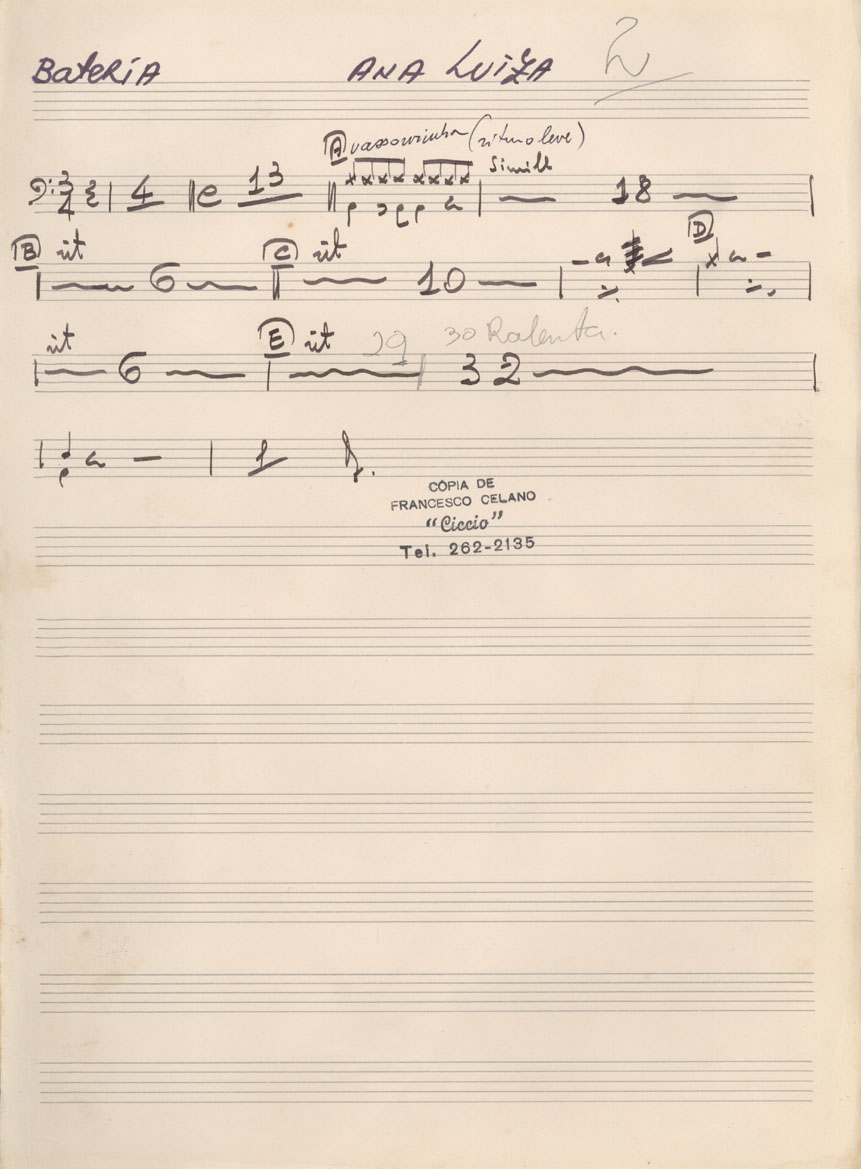 BateRiA ANA LUiZA 2
A vassourinha (ritmo leve)
3 4 4 C 13 Simill 18
B rit C rit D
6 10
rit E rit 29 30 Ralenta.
6 32
1
CÓPIA DE
FRANCESCO CELANO
"Ciccio"
Tel. 262-2135